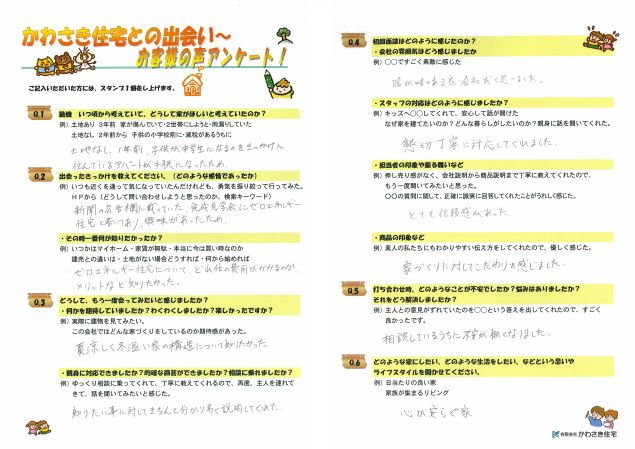 かわさき住宅との出会い～
お客様の声アンケート！
ご記入いただいた方には、スタンプ1個差し上げます。
Q.1
動機　いつ頃から考えていて、どうして家がほしいと考えていたのか？
例）土地あり 3年前 家が傷んでいて・2世帯にしようと・雨漏りしていた
土地なし 2年前から 子供の小学校前に・減税があるうちに
土地なし、1年前、子供が中学生になるのをきっかけに
住んでいるアパートが手狭になったため。
Q.2
出会ったきっかけを教えてください。（どのような感情であったか）
例）いつも近くを通って気になっていたんだけれども、勇気を振り絞って行ってみた。
HPから（どうして問い合わせしようと思ったのか、検索キーワード）
新聞の広告欄に載っていた、完成見学会にゼロエネルギー
住宅と書いてあり、興味があったため。
・その時一番何が知りたかったか？
例）いつかはマイホーム・家賃が無駄・本当に今は買い時なのか
建売との違いは・土地がない場合どうすれば・何から始めれば
・ゼロエネルギー住宅について、どれ位の費用がかかるのか、
メリットなど知りたかった。
Q.3
どうして、もう一度会ってみたいと感じましたか？
・何かを期待していましたか？わくわくしましたか？楽しかったですか？
例）実際に建物を見てみたい。
この会社ではどんな家づくりをしているのか期待感があった。
夏涼しく冬温い家の構造について知りたかった
・親身に対応できましたか？的確な回答ができましたか？相談に乗れましたか？
例）ゆっくり相談に乗ってくれて、丁寧に教えてくれるので、再度、主人を連れて
きて、話を聞いてみたいと感じた。
知りたい事に対してきちんと分かり易く説明してくれた。
Q.4
初回面談はどのように感じたのか？
・会社の雰囲気はどう感じましたか
例）○○ですごく素敵に感じた
・スタッフの対応はどのように感じましたか？
例）キッズへ○○してくれて、安心して話が聞けた
なぜ家を建てたいのか？どんな暮らしがしたいのか？親身に話を聞いてくれた。
懇切丁寧に対応してくれました。
・担当者の印象や振る舞いなど
例）押し売り感がなく、会社説明から商品説明まで丁寧に教えてくれたので、
もう一度聞いてみたいと思った。
○○の質問に関して、正確に誠実に回答してくれたことがうれしく感じた。
とても信頼感があった。
・商品の印象など
例）素人の私たちにもわかりやすい伝え方をしてくれたので、優しく感じた。
家づくりに対してこだわりを感じました。
Q.5
打ち合わせ時、どのようなことが不安でしたか？悩みはありましたか？
それをどう解決しましたか？
例）主人との意見がずれていたのを○○という答えを出してくれたので、すごく
良かったです。
相談しているうちに不安が無くなりました。
Q.6
どのような家にしたい、どのような生活をしたい、などという思いや
ライフスタイルを聞かせてください。
例）日当たりの良い家
家族が集まるリビング
心が安らぐ家
有限会社 かわさき住宅